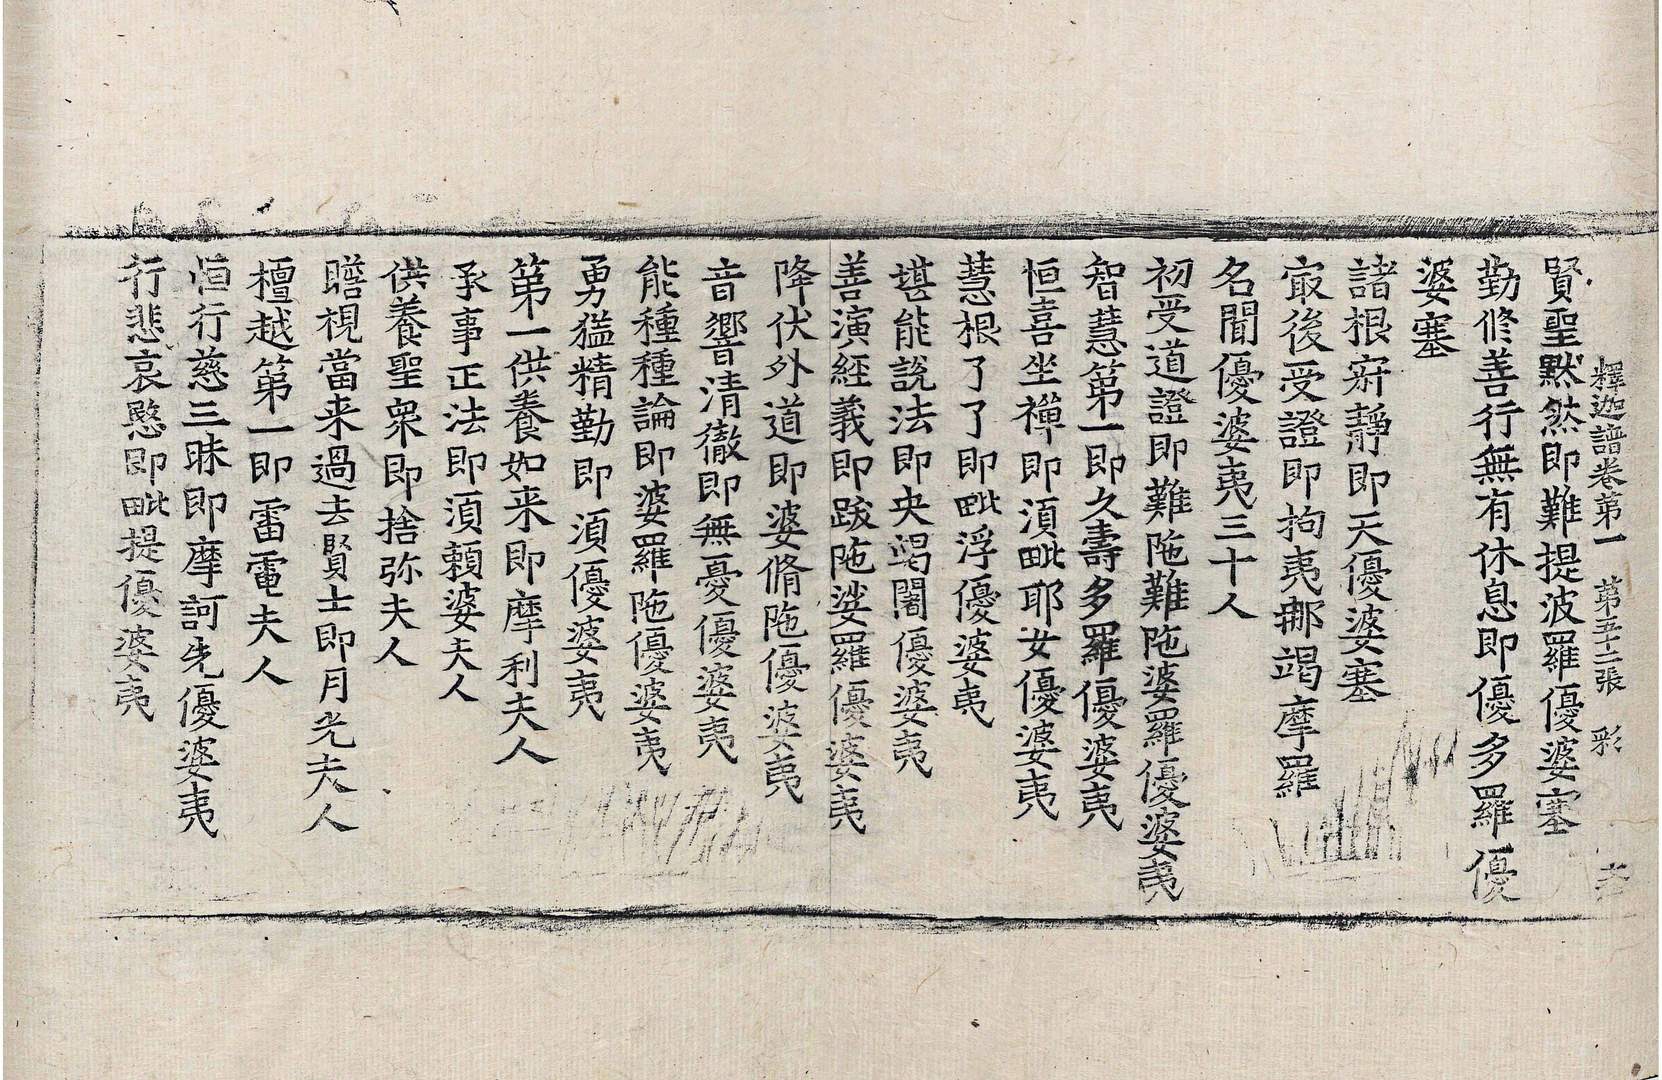 釋迦譜卷第一 第五十二張 彩
賢聖默然即難提波羅優婆塞
勤修善行無有休息即優多羅優
婆塞
諸根寂靜即天優婆塞
冣後受證即拘夷那竭摩羅
名聞優婆夷三十人
初受道證即難陁難陁婆羅優婆夷
智慧第一即久壽多羅優婆夷
恒喜坐禪即湏毗耶女優婆夷
慧根了了即毗浮優婆夷
堪能說法即央竭闍優婆夷
善演經義即跋陁娑羅優婆夷
降伏外道即婆脩陁優婆夷
音響清徹即無憂優婆夷
能種種論即婆羅陁優婆夷
勇猛精勤即湏優婆夷
第一供養如来即摩利夫人
承事正法即湏賴婆夫人
供養聖衆即捨弥夫人
瞻視當来過去賢士即月光夫人
檀越第一即雷電夫人
恒行慈三昧即摩訶先優婆夷
行悲哀愍即毗提優婆夷